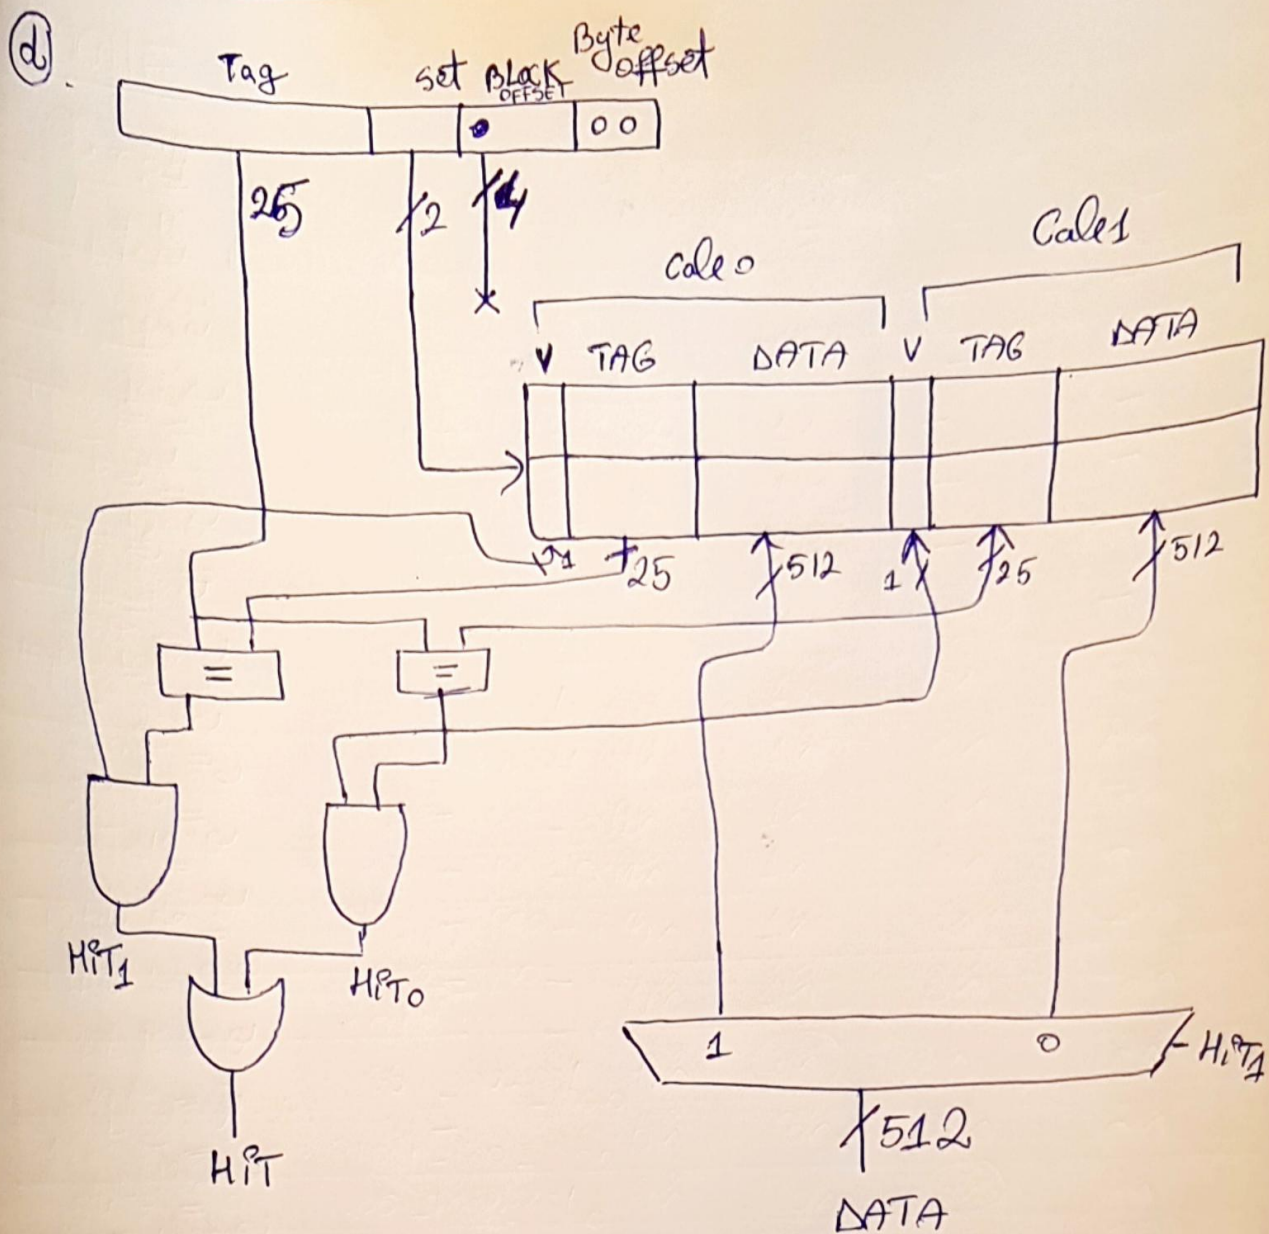 d.
Tag set BLOCK OFFSET Byte offset
00
25 2 4
Cale 0 Cale 1
V TAG DATA V TAG DATA
1 25 512 1 25 512
= =
HIT1 HIT0
1 0 HIT1
HIT
512
DATA